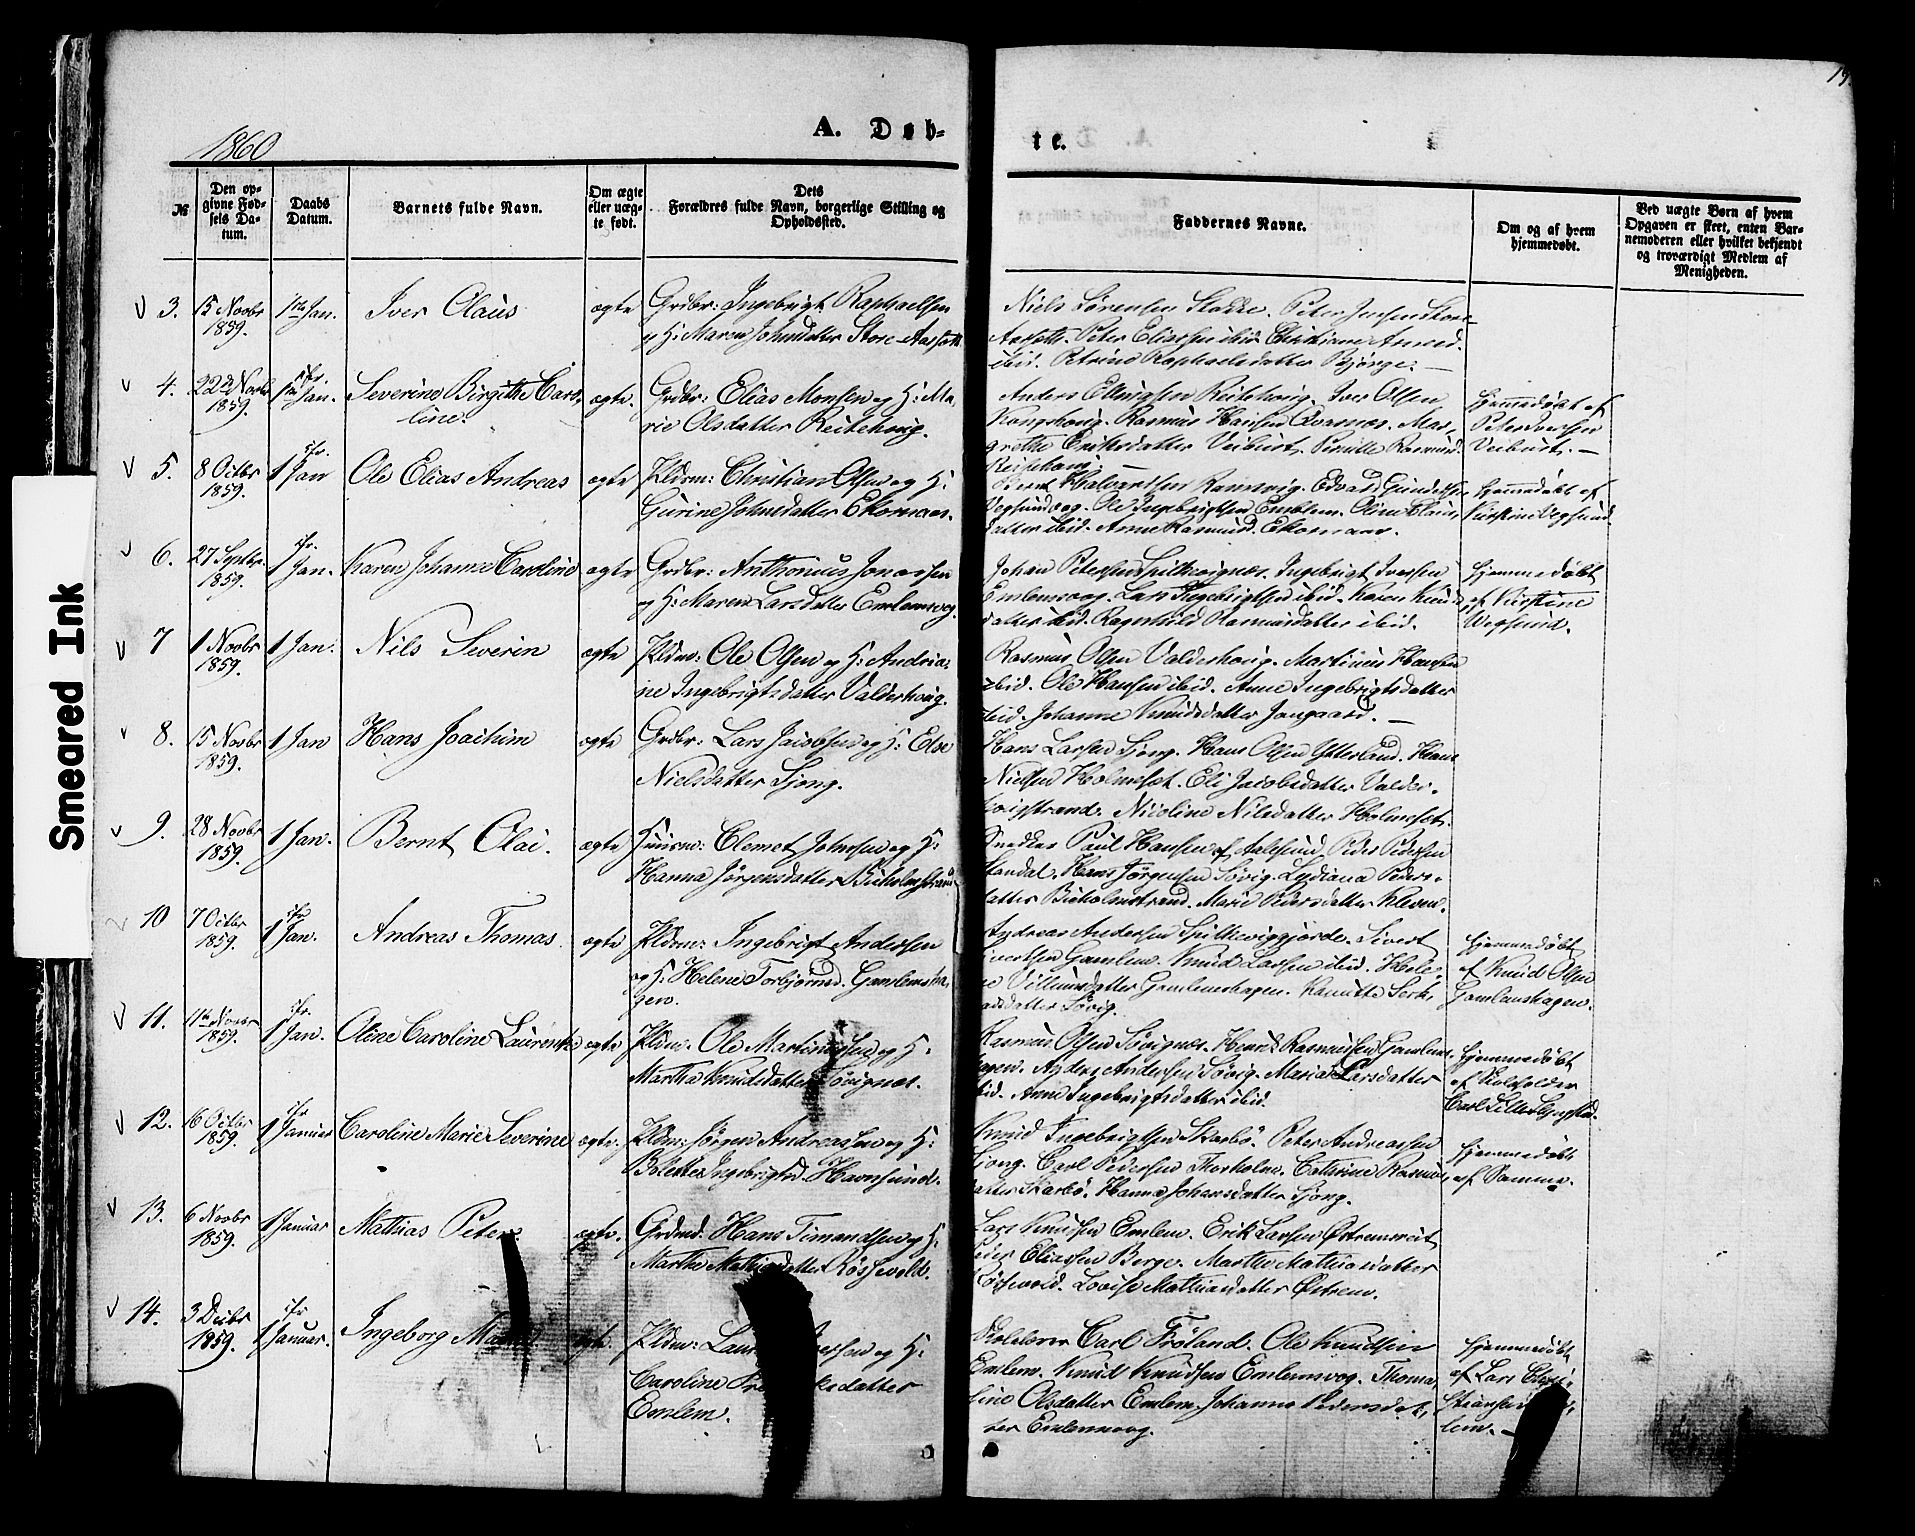 19.
1860
A. Døb-
te.
№
Den op-
givne Fød-
sels Da-
tum.
Daabs
Datum.
Barnets fulde Navn.
Om ægte
eller uæg-
te født.
Dets
Forældres fulde Navn, borgerlige Stilling og
Opholdssted.
Faddernes Navne.
Om og af hvem
hjemmedøbt.
Ved uægte Børn af hvem
Opgaven er skeet, enten Bar-
nemoderen eller hvilket bekjendt
og troværdigt Medlem af
Menigheden.
Smeared Ink
3. 15 Novbr 1859. 1te Jan. Iver Olaus ægte
Grdbr: Ingebrigt Raphaelsen
og H: Maren Johnsdatter Store-Aasseth
Niels Sørensen Slotte. Peter Jensen Store
Aaseth. Peter Eliassen ibid. Christiane
ibid. Petrine Raphaelsdatter Bjørge. —
4. 22 Novbr 1859. ifr. 1te Jan. Severine Birgithe Caro-
line. ægte.
Grdbr: Elias Monsen og H: Ma-
rie Olsdatter Reitehvig.
Anders Ellingsen Reitehvig. Iver Olsen
Kongshoug. Rasmus Hansen Qvasnæs. Mar-
grethe Eriksdatter Veibust. Pernille Rasmusd.
Reitehvig —
Hjemmedøbt af
Peter Iversen
Veibust. —
5. 8 Octbr 1859. ifr. 1 Jan Ole Elias Andreas ægte
Pldsm: Christian Olsen og H:
Gurine Johnsdatter Ekornæs.
Bernt Halvorsen Ramsvig. Edvard Gundersen
Vegsundvog. Ole Ingebrigtsen Emblem. Oline Claus-
datter ibid. Anne Rasmusd. Ekornæs.
Hjemmedøbt af
Kirstine Vegsund.
6. 27 Septbr. 1859. ifr. 1 Jan. Karen Johanne Caroline ægte
Grdbr: Anthonius Jonassen
og H: Maren Larsdatter Emlemsvog.
Johan Petersen Spilkevignæs. Ingebrigt Iversen
Emlemsvog. Lars Ingebrigtsen ibid. Karen Knuds-
datter ibid. Ragnhild Rasmusdatter ibid.
Hjemmedøbt
af Kirstine
Vegsund.
7 1 Novbr 1859. 1 Jan. Nils Severin ægte
Pldsm: Ole Olsen og H: Andria-
ne Ingebrigtsdatter Valderhvig.
Rasmus Olsen Valderhvig. Martinus Hansen
ibid. Ole Hansen ibid. Anne Ingebrigtsdatter
ibid. Johanne Knudsdatter Jangaard. —
8. 15 Novbr 1859. 1 Jan Hans Joachim ægte
Grdbr: Lars Jacobsen og H: Else
Nielsdatter Sjong.
Hans Larsen Sjong. Hans Olsen Ytterland. Hans
Nielsen Holmeset. Eli Jacobsdatter Valder-
hvigstrand. Nicoline Nilsdatter Holmeset.
9. 28 Novbr 1859. 1 Jan. Bernt Olai. ægte
Huusm: Clemet Johnsen og H:
Hanna Jørgensdatter Buholmstrand
Snedker Paul Hansen af Aalesund. Peder Pedersen
Standal. Hans Jørgensen Søvig. Lydiana Peders-
datter Buholmstrand. Marie Pedersdatter Kleven.
10 7 Octbr 1859. ifr 1 Jan. Andreas Thomas. ægte
Pldsm: Ingebrigt Andersen
og H: Helene Torbjørnsd. Gamlemsha-
gen.
Andreas Andersen Spilkeviggjerde. Sivert
Sivertsen Gamlem. Knud Larsen ibid. Hele-
ne Villumsdatter Gamlemshagen. Kanutte Serk-
Søvig.
Hjemmedøbt
af Knud Olsen
Gamlemshagen.
11. 11te Novbr 1859. ifr. 1 Jan. Oline Caroline Laurentze ægte
Pldsm: Ole Martinussen og H:
Martha Knudsdatter Søvignæs.
Rasmus Olsen Søvignæs. Henrik Rasmussen Gamlems-
hagen. Anders Andersen Søvig. Maria Larsdatter
ibid. Anne Ingebrigtsdatter ibid.
Hjemmedøbt
af Skoleholder
Carl
12. 16 Octbr 1859. ifr 1 Januar Caroline Marie Severine ægte.
Pldsm: Søren Andreassen og H:
Bolette Ingebrigtsd. Havnsund.
Knud Ingebrigtsen Skarbø. Peter Andreassen
Sjong. Carl Pedersen Thorholm. Cathrine Rasmus-
datter Skarbø. Hanna Johansdatter Sjong.
Hjemmedøbt
af Samme.
13. 6 Novbr 1859. 1 Januar Mathias Peter ægte.
Grdmd: Hans Timandsen og H:
Marthe Mathiasdatter Røssevold.
Lars Knudsen Emlem. Erik Larsen Østremsveit
Peder Eliassen Berge. Marthe Mathiasdatter
Røssevold. Lovise Mathiasdatter Østrem.
14. 3 Decbr 1859. ifr 1 Januar. Ingeborg ægte.
Pldsm: og H:
Caroline
Emlem.
Skolelærer Carl Frøland. Ole Knudsen
Emlem. Knud Knudsen Emlemsvog. Thoma-
sine Olsdatter Emlem. Johanne Pedersdat-
ter Emlemsvog.
Hjemmedøbt
af Lars Chri-
stiansen
lem. —